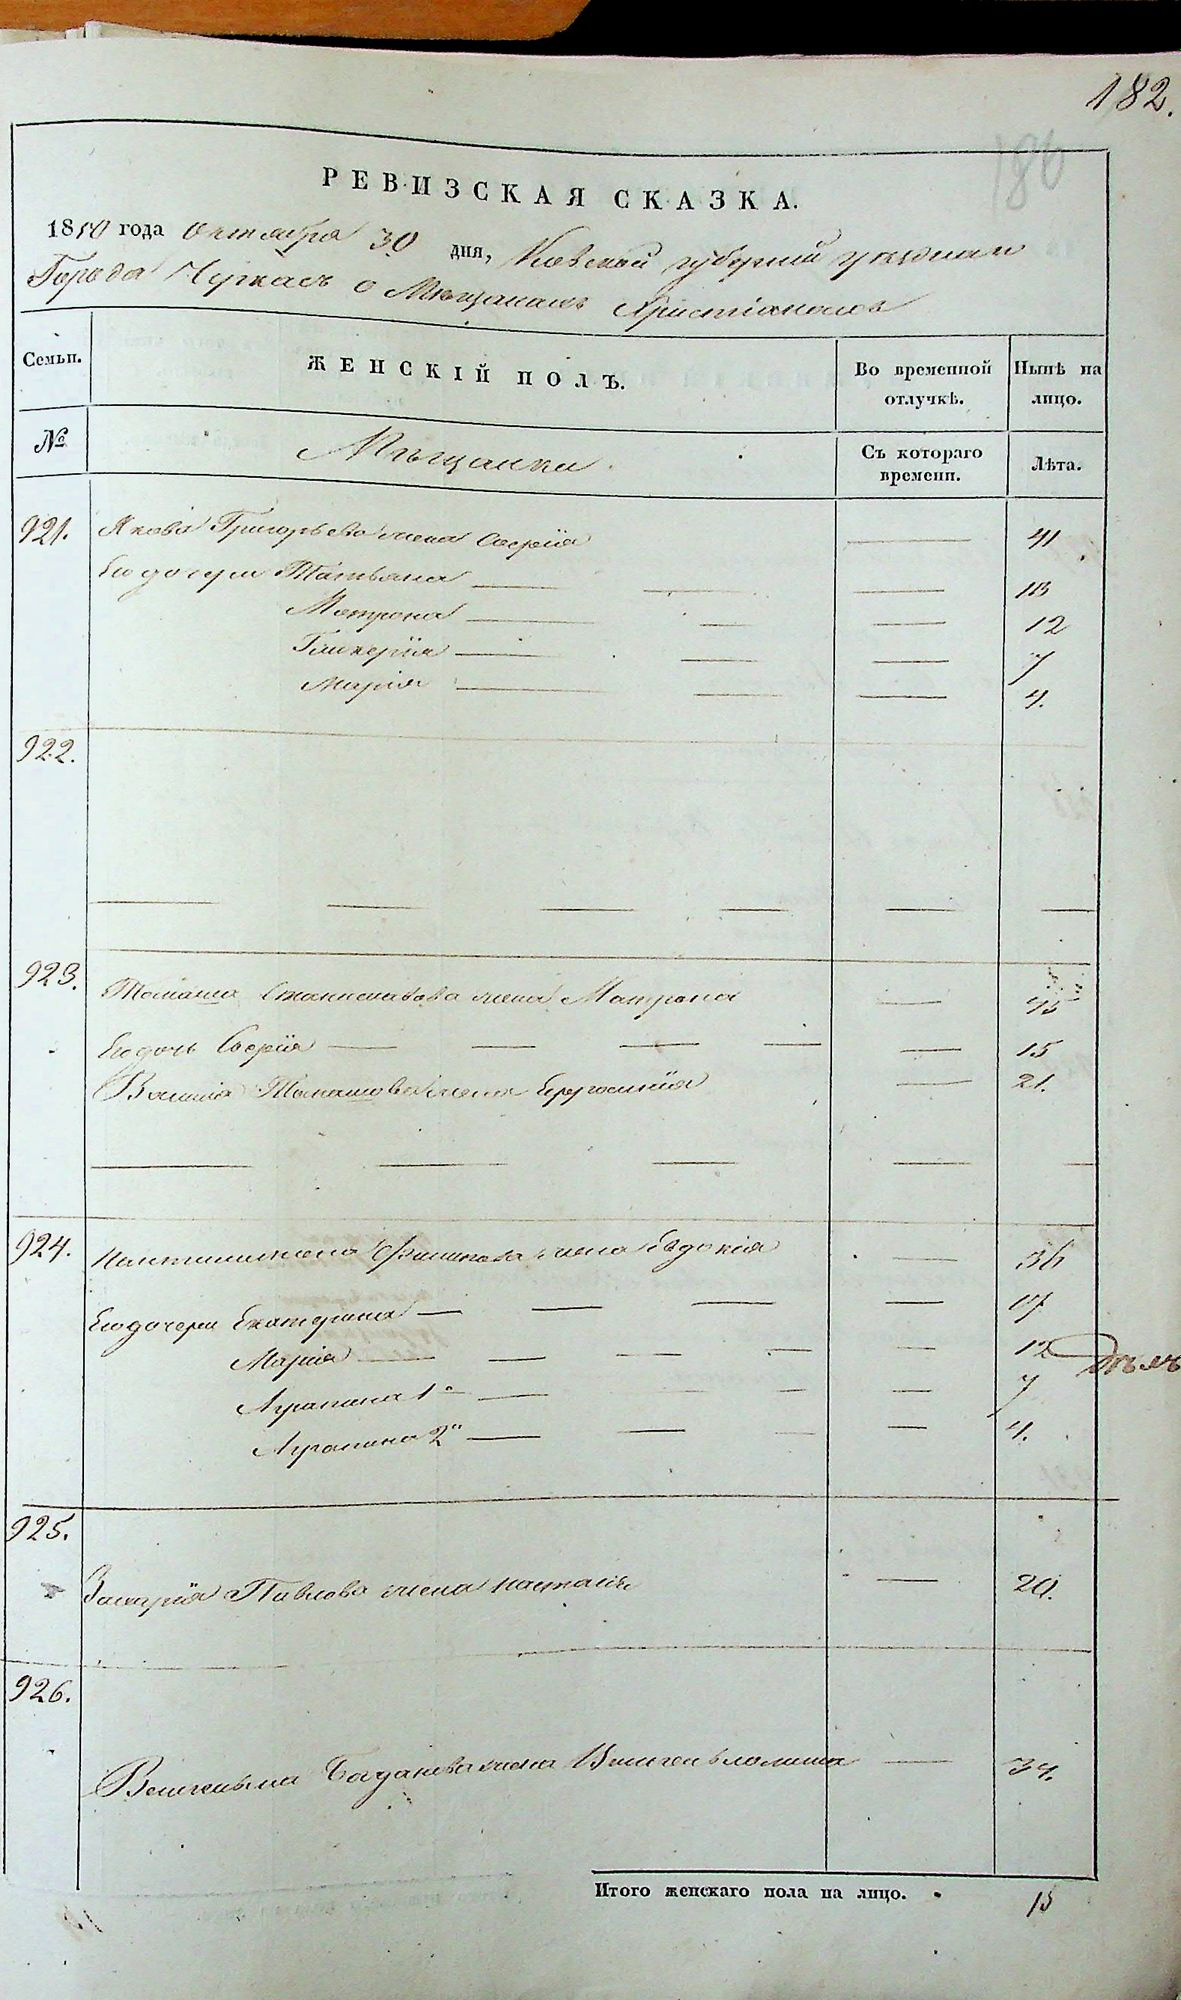 182.
186
РЕВИЗСКАЯ СКАЗКА.
1850 года Октября 30 дня, Киевской губернии уезднаго
Города Черкасъ о Мѣщанахъ Христіанахъ
Семьи.
ЖЕНСКІЙ ПОЛЪ.
Во временной отлучкѣ.
Нынѣ на лицо.
№
Мѣщанки.
Съ котораго времени.
Лѣта.
921. Якова Григорьева жена Софія 41
Его дочери Татьяна 18
Матрона 12
Гликерія 7
Марія 4.
922.
923. Томаша Станиславова жена Матрона 45
Его дочь Софія 15
Василія Томашова жена Евфросинія 21.
924. Константина Филипова жена Евдокія 36
Его дочери Екатерина 17
Марія 12
Агрипина 1я 7
Агрипина 2я 4.
925.
Захарія Павлова жена 20.
926.
Вильгельма Богданова жена Вильгельмина 34.
Итого женскаго пола на лицо. 15